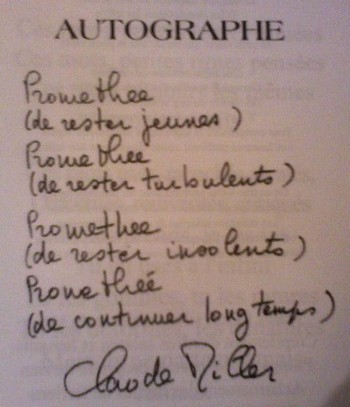 AUTOGRAPHE
Promethee
(de rester jeunes)
Promethee
(de rester turbulents)
Promethee
(de rester insolents)
Promethéé
(de continuer longtemps)
Claude Miller